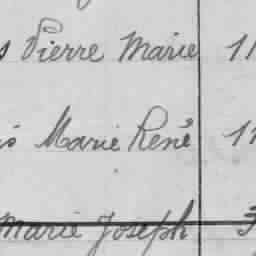 Pierre Marie 11
Marie René
Marie Joseph 3